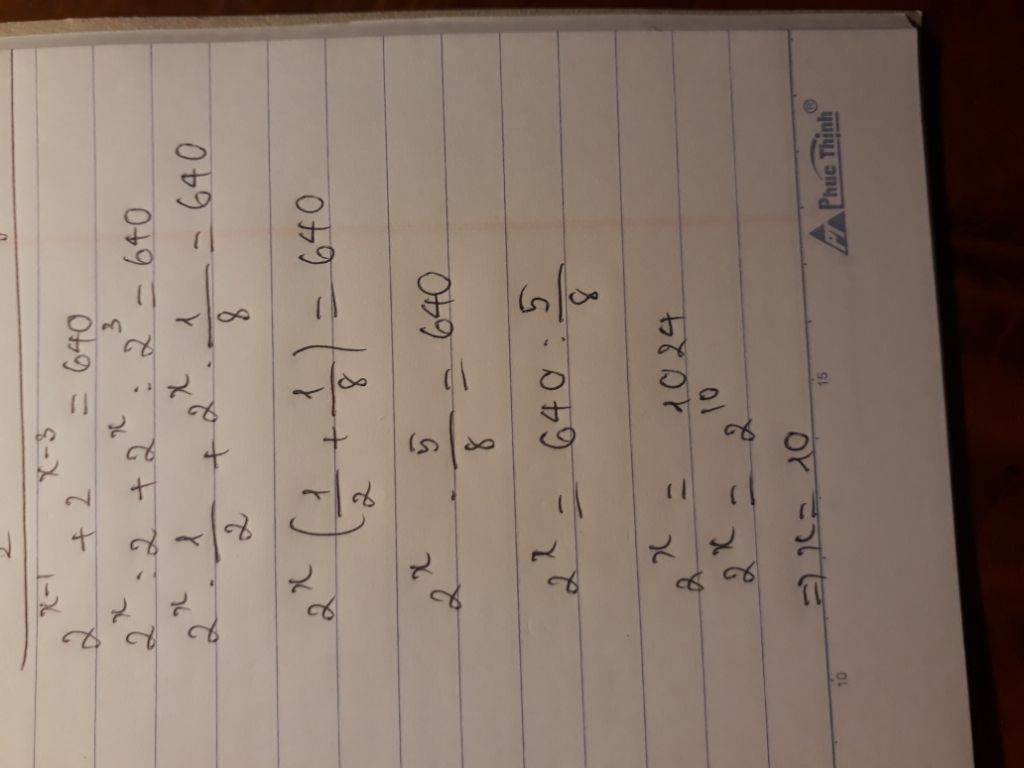 2^{x-1} + 2^{x-3} = 640
2^x : 2 + 2^x : 2^3 = 640
2^x . \frac{1}{2} + 2^x . \frac{1}{8} = 640
2^x (\frac{1}{2} + \frac{1}{8}) = 640
2^x . \frac{5}{8} = 640
2^x = 640 : \frac{5}{8}
2^x = 1024
2^x = 2^{10}
=> x = 10
10 15
PT Phuc Thịnh®